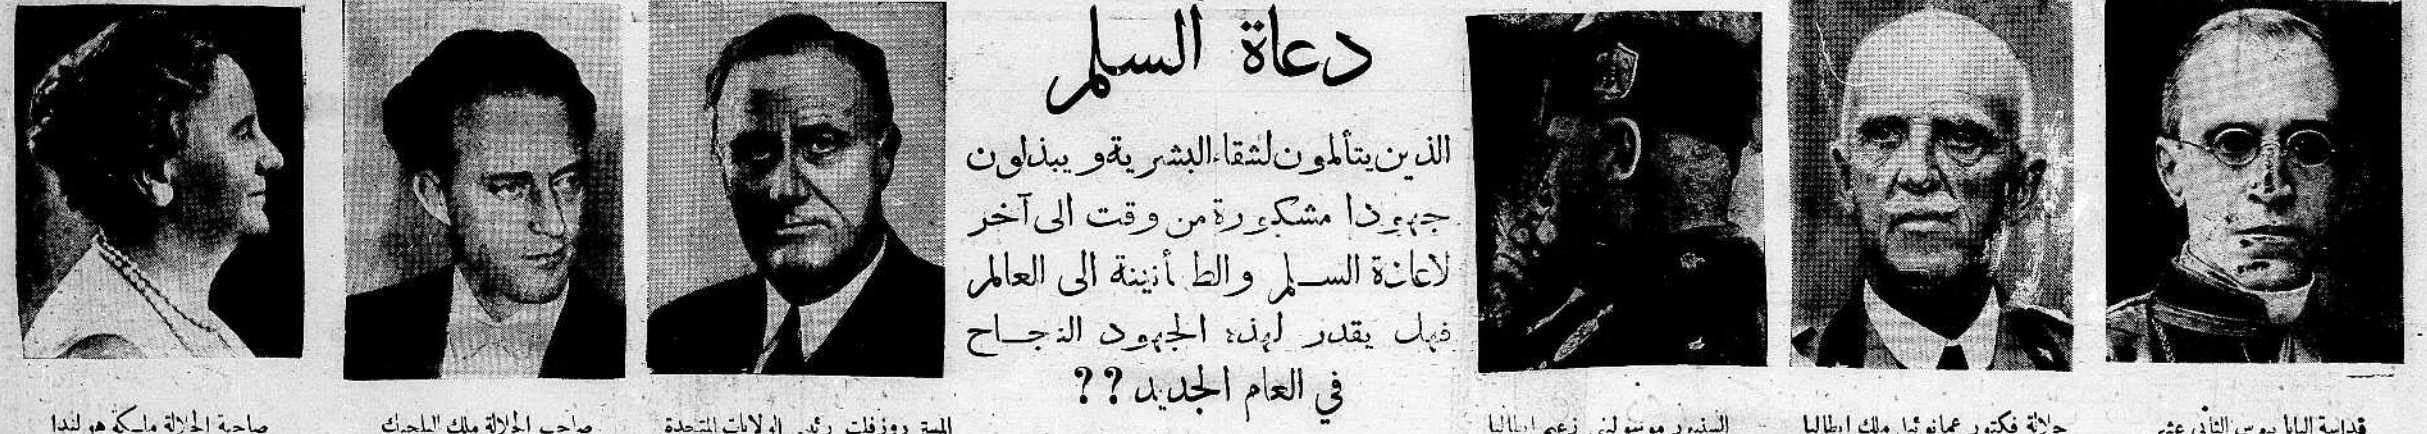 دعاة السلم
الذين يتألمون لشقاء البشرية و يبذلون
جهودا مشكورة من وقت الى آخر
لاعادة السلم والطمأنينة الى العالم
فهل يقدر لهذه الجهود النجاح
في العام الجديد ??
قداسة البابا بيوس الثاني عشر
جلالة فكتور عمانوئيل ملك ايطاليا
السنيور موسوليني زعيم ايطاليا
المستر روزفلت رئيس الولايات المتحدة
صاحب الجلالة ملك البلجيك
صاحبة الجلالة ملكة هولندا